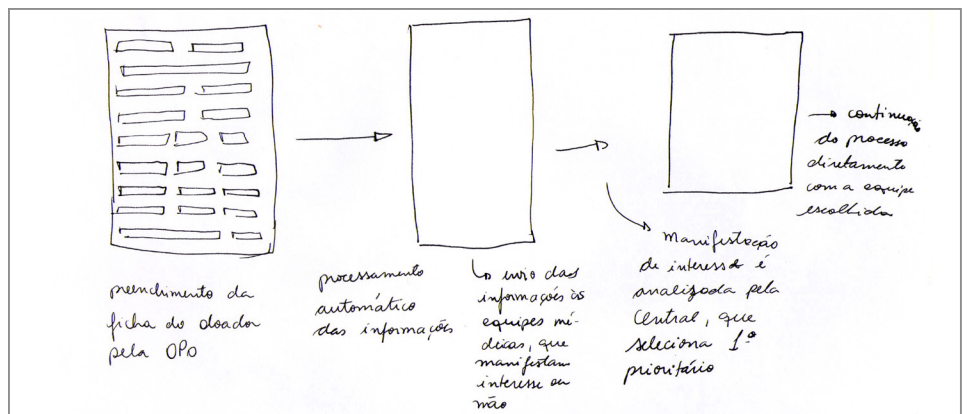 preenchimento da
ficha do doador
pela OPO
processamento
automático
das informações
↳ envio das
informações às
equipes mé-
dicas, que
manifestam
interesse ou
não
Manifestação
de interesse é
analizada pela
Central, que
seleciona 1º
prioritário
→ continuação
do processo
diretamente
com a equipe
escolhida